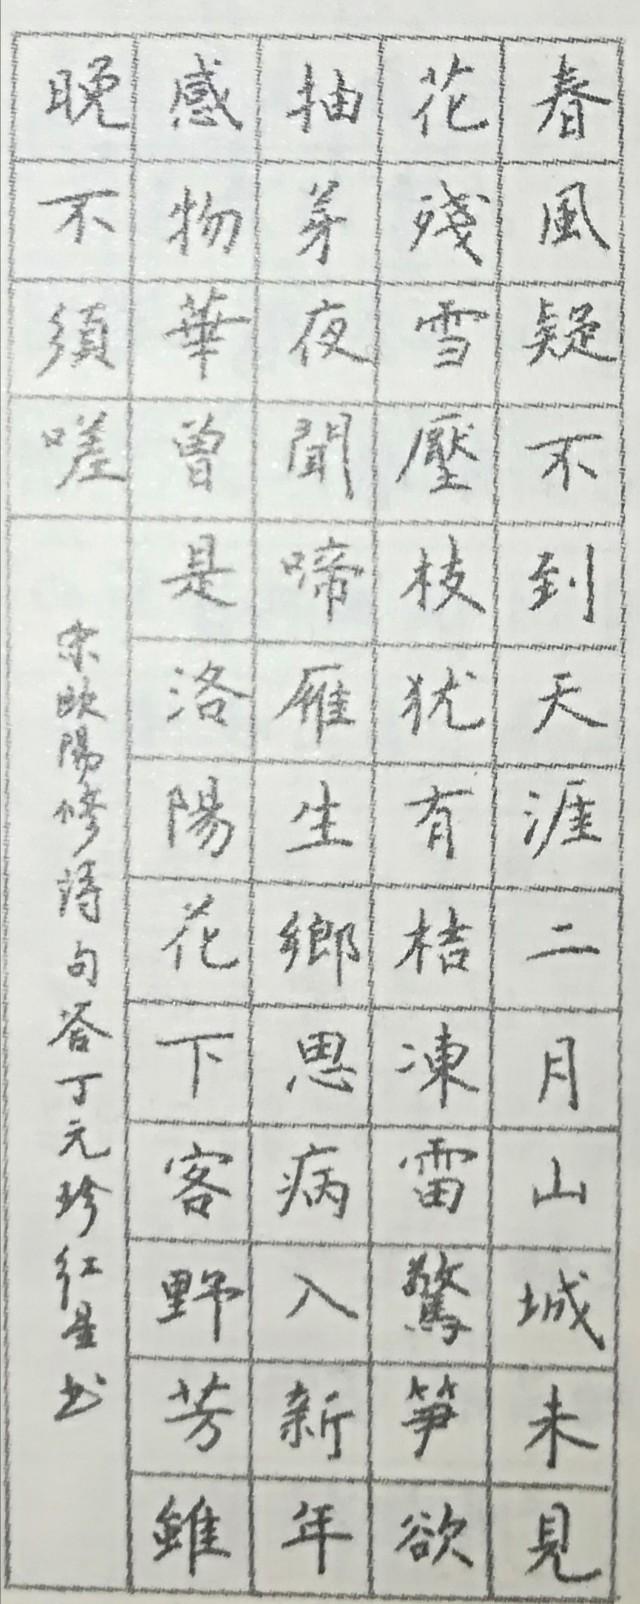 春風疑不到天涯二月山城未見
花殘雪壓枝猶有桔凍雷驚筍欲
抽芽夜聞啼雁生鄉思病入新年
感物華曾是洛陽花下客野芳雖
晚不須嗟
宋歐陽修詩句答丁元珍紅星书